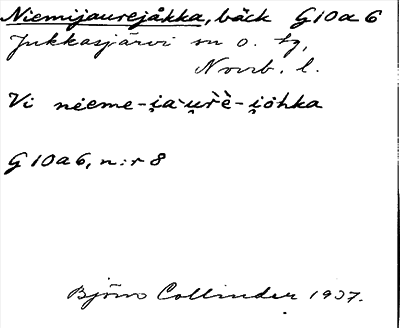 Niemijaurejåkka, bäck G10a6
Jukkasjärvi sn o. tg,
Norrb. l.
Vi nieme-i̯a·u̯rè-i̯ohka
G10a6, n:r 8
Björn Collinder 1937.